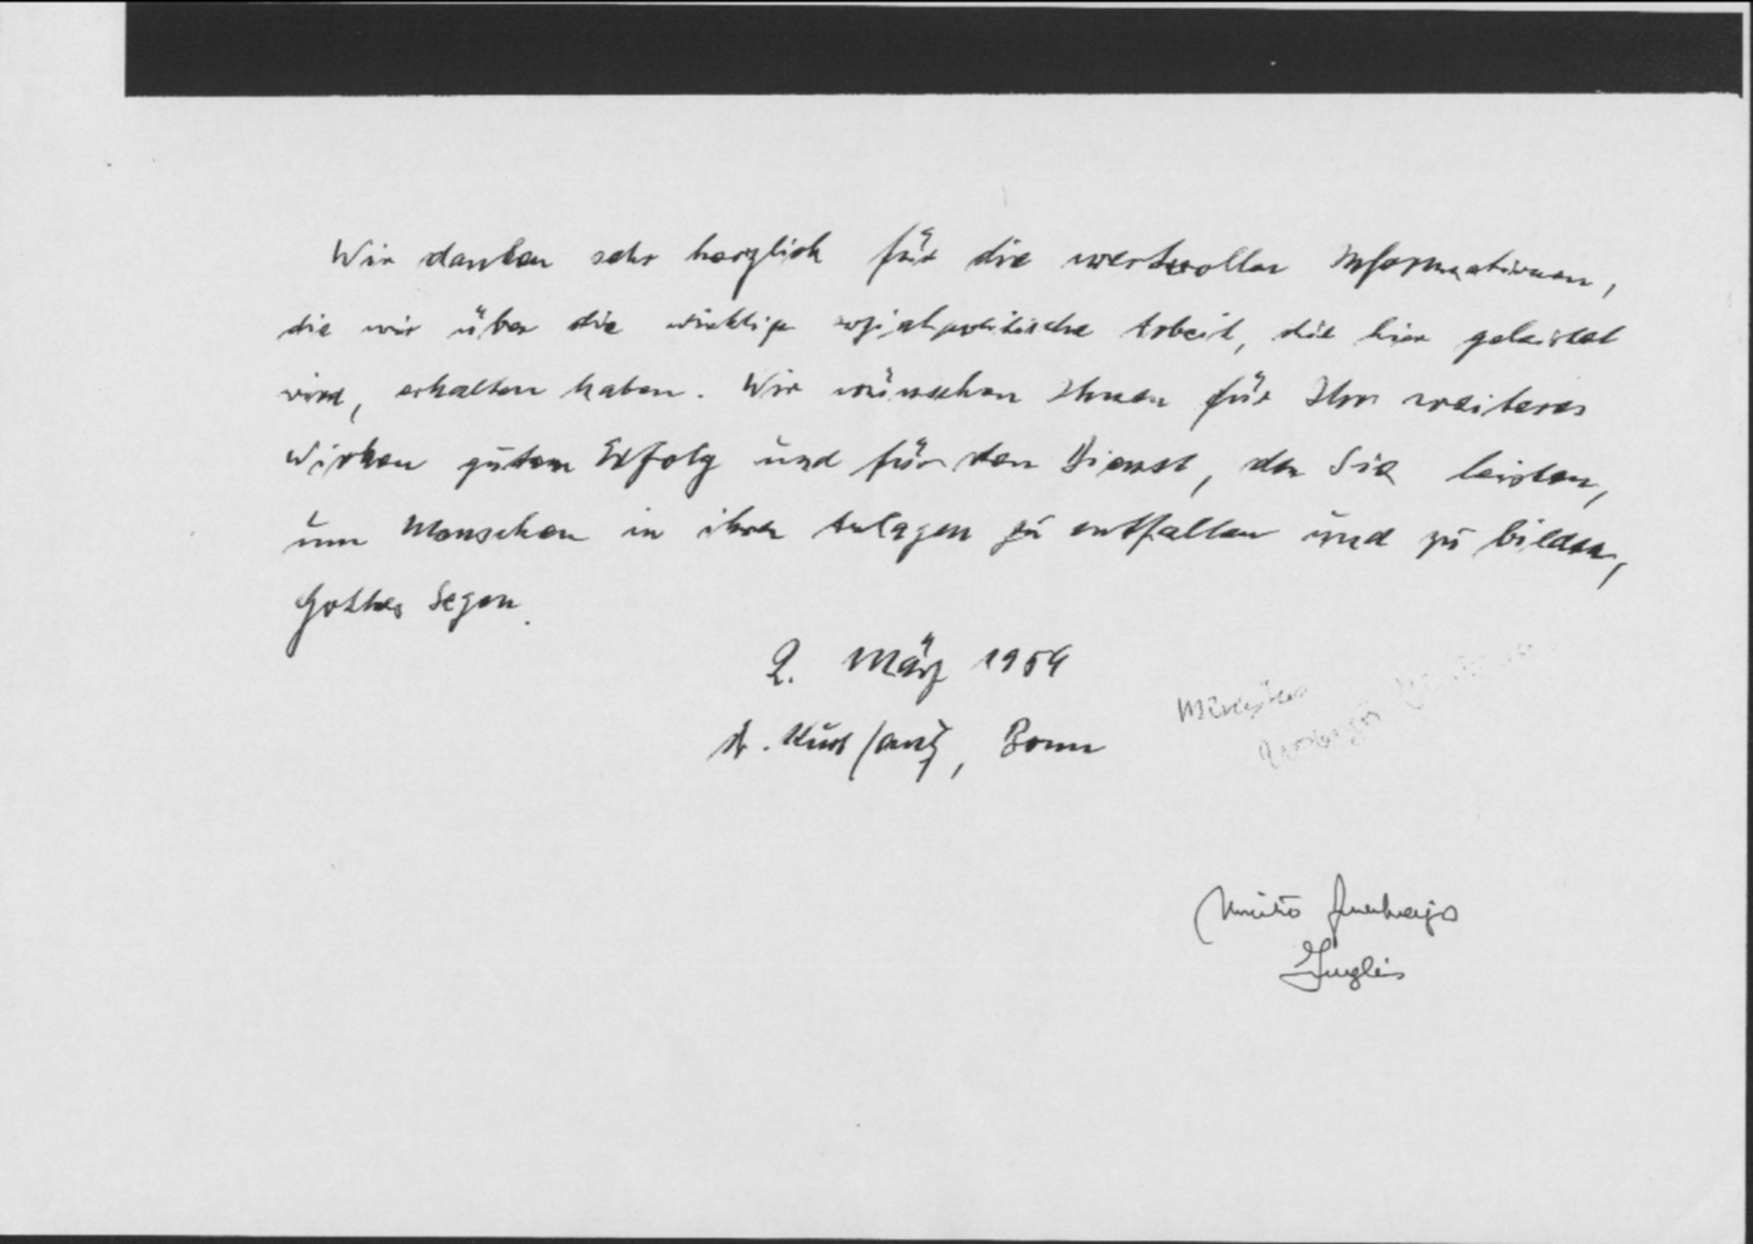 Wir danken sehr herzlich für die wertvollen Informationen,
die wir über die wichtige sozialpolitische Arbeit, die hier geleistet
wird, erhalten haben. Wir wünschen Ihnen für Ihr weiteres
Wirken guten Erfolg und für den Dienst, den Sie leisten,
um Menschen in ihren Anlagen zu entfalten und zu bilden,
Gottes Segen.
2. März 1959
Dr. Kurt Lantz, Bonn